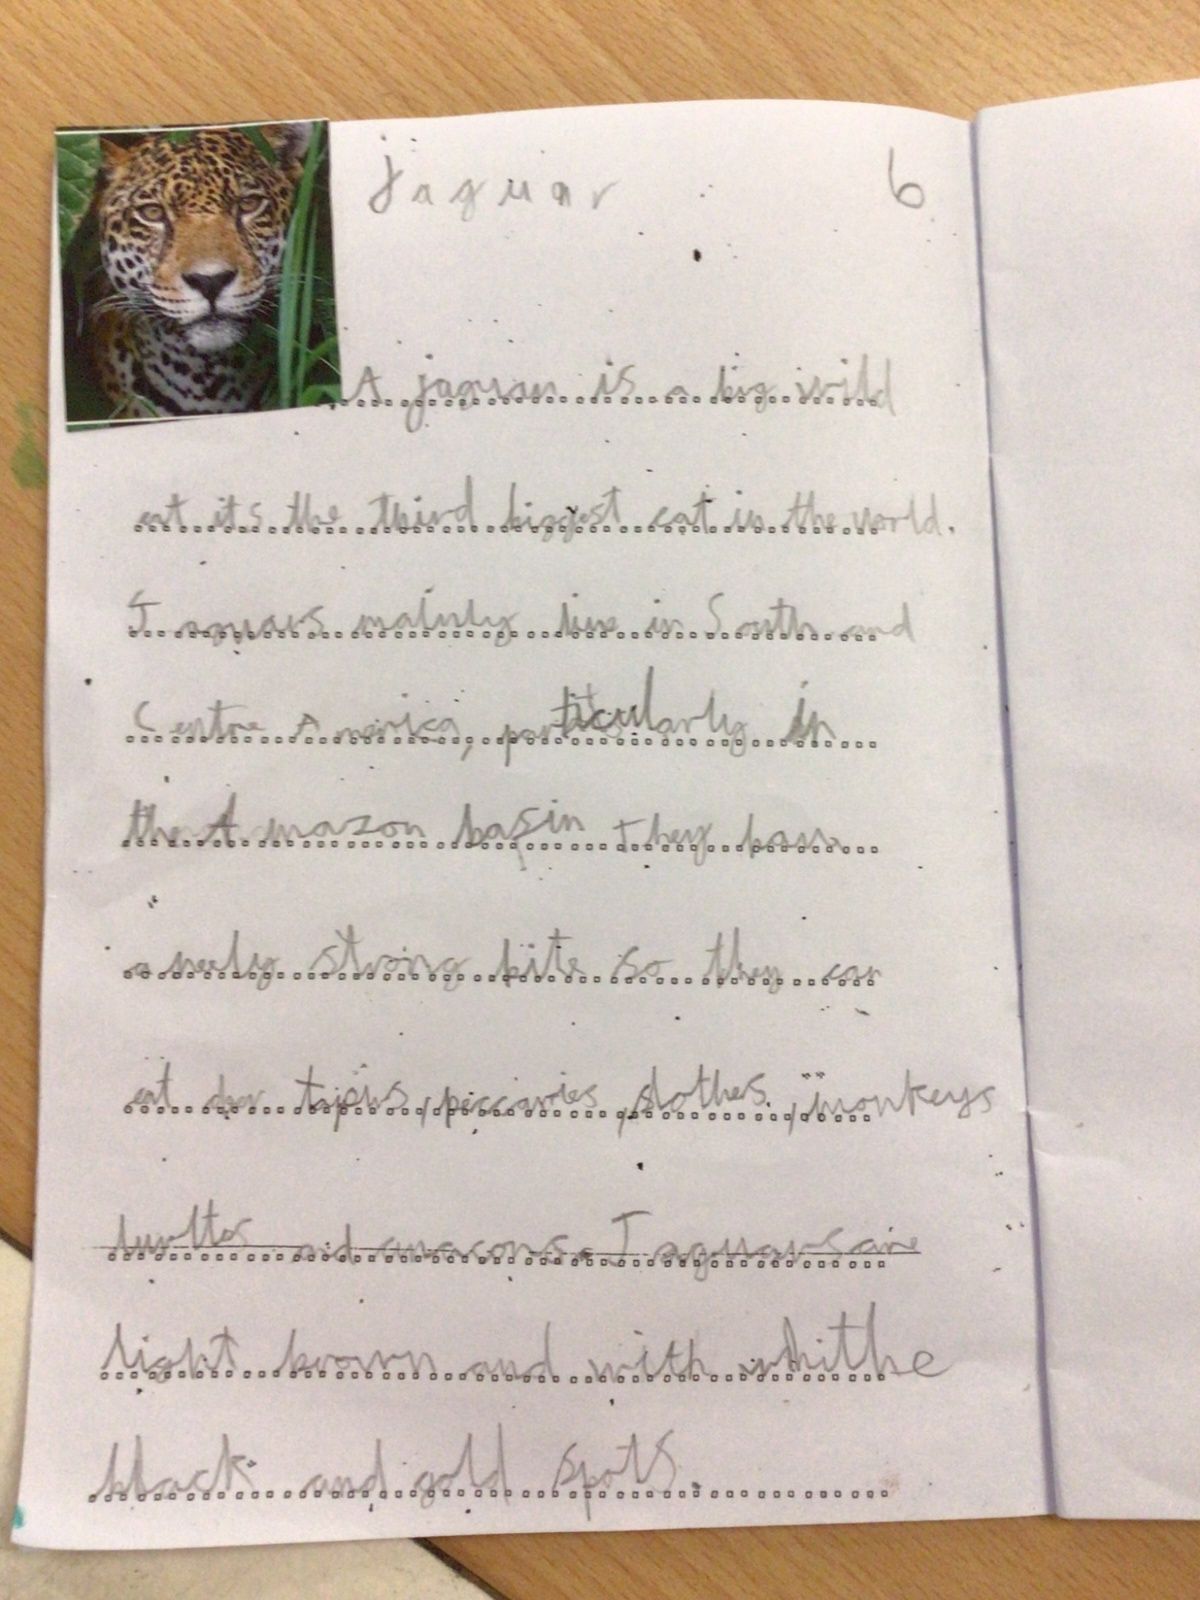 jaguar 6
A jaguar is a big wild
cat its the third biggest cat in the world.
Jaguars mainly live in South and
Centre America, particularly in
the Amazon basin They have
a reely strong bite so they can
eat deer tapirs, peccaries, slothes, monkeys
turltes and anacons. Jaguars are
light brown and with whithe
black and gold spots.